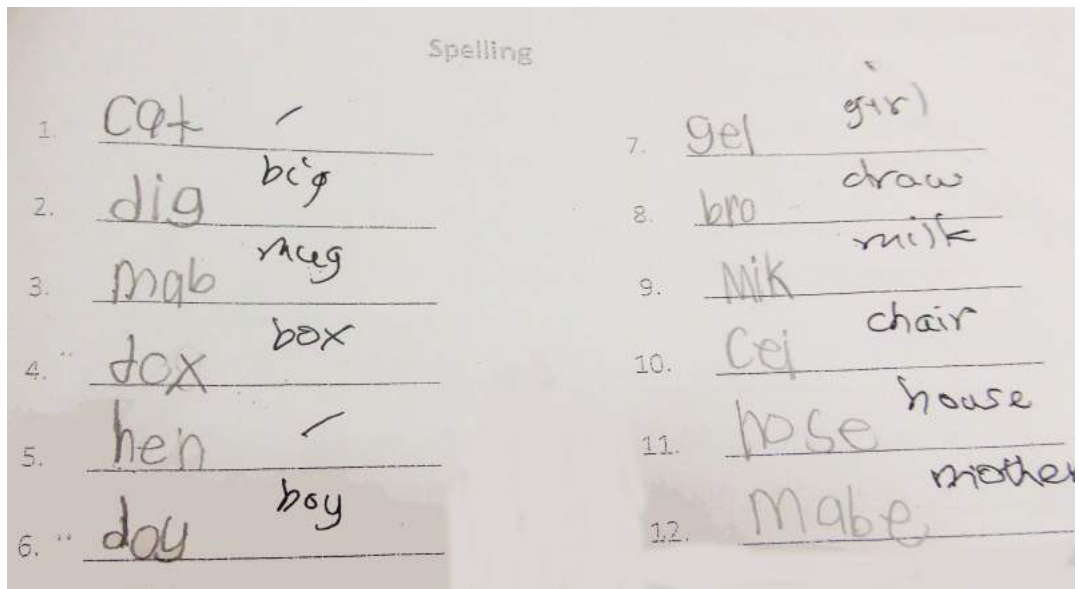 Spelling
1. cat ✓
2. dig big
3. mab mug
4. " dox box
5. hen ✓
6. " doy boy
7. gel girl
8. bro draw
9. Mik milk
10. Cei chair
11. hose house
12. Mabe mother